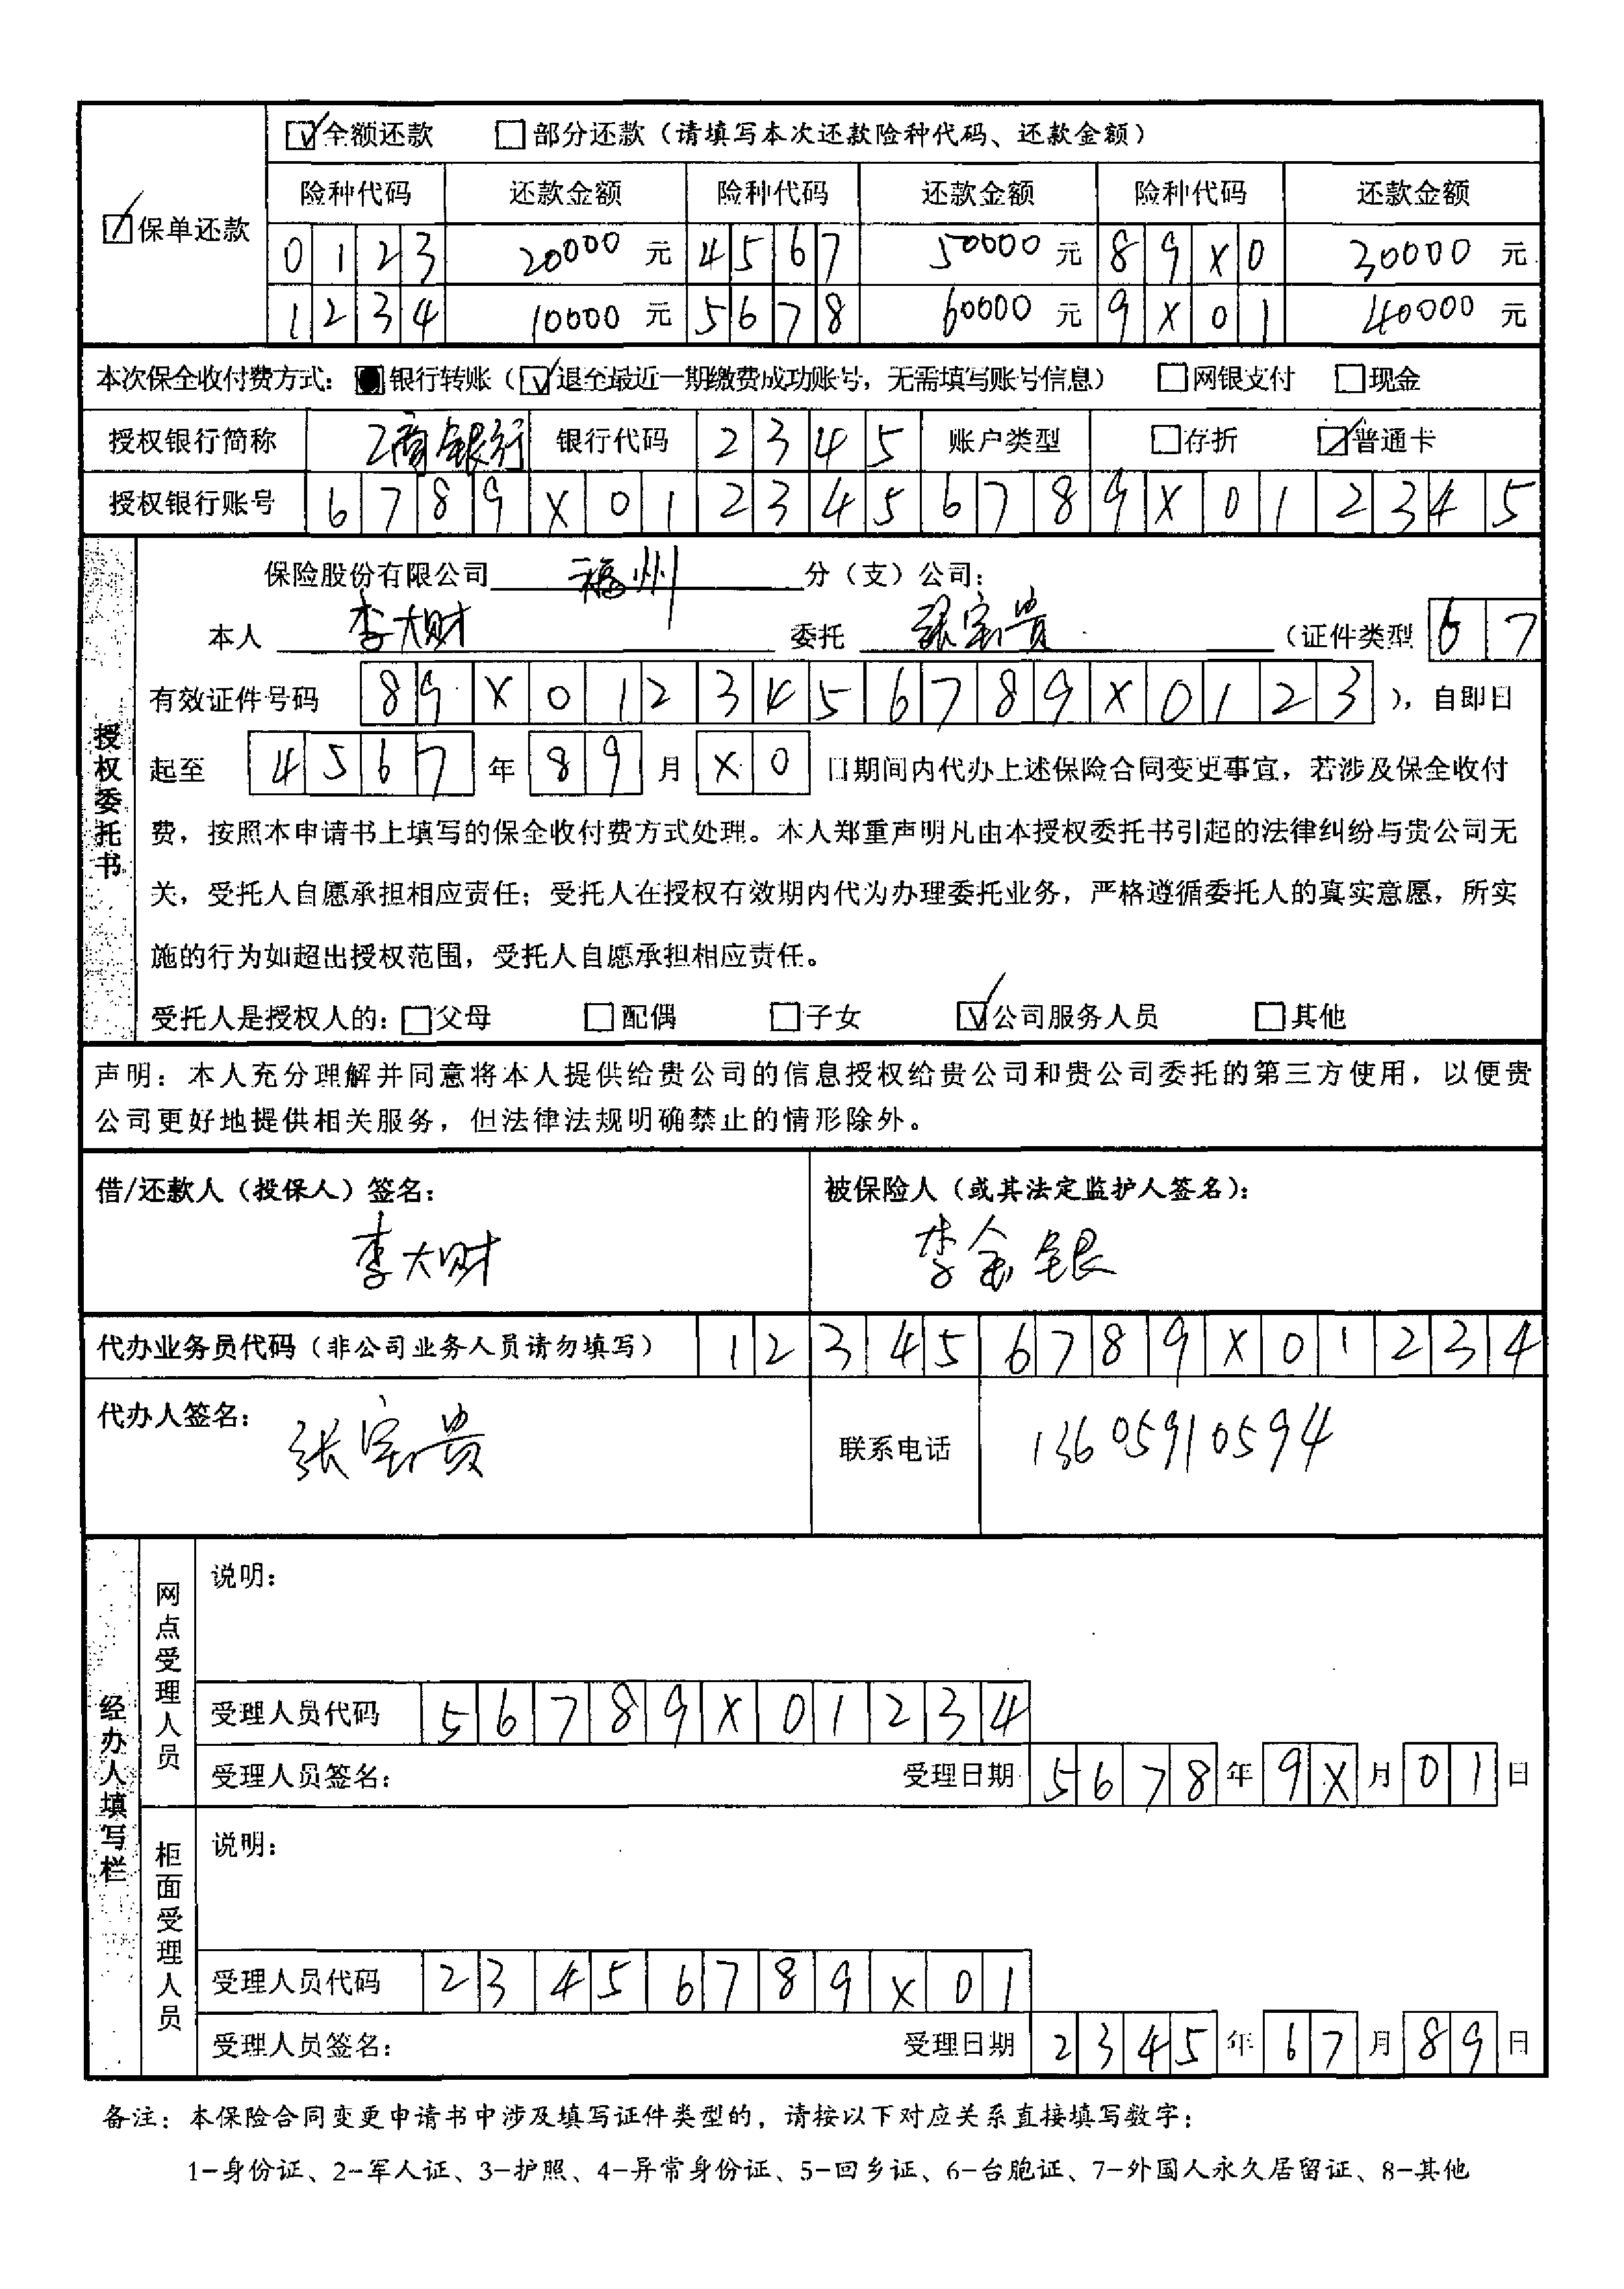 ☑全额还款 □部分还款（请填写本次还款险种代码、还款金额）
☑保单还款
险种代码 还款金额 险种代码 还款金额 险种代码 还款金额
0123 20000元 4567 50000元 89X0 30000元
1234 10000元 5678 60000元 9X01 40000元
本次保全收付费方式：■银行转账（☑退至最近一期缴费成功账号，无需填写账号信息） □网银支付 □现金
授权银行简称 工商银行 银行代码 2345 账户类型 □存折 ☑普通卡
授权银行账号 6789X0123456789X012345
授权委托书
保险股份有限公司 福州 分（支）公司：
本人 李大财 委托 张宝贵 （证件类型 67
有效证件号码 89X0123456789X0123 ），自即日
起至 4567 年 89 月 X0 日期间内代办上述保险合同变更事宜，若涉及保全收付
费，按照本申请书上填写的保全收付费方式处理。本人郑重声明凡由本授权委托书引起的法律纠纷与贵公司无
关，受托人自愿承担相应责任；受托人在授权有效期内代为办理委托业务，严格遵循委托人的真实意愿，所实
施的行为如超出授权范围，受托人自愿承担相应责任。
受托人是授权人的：□父母 □配偶 □子女 ☑公司服务人员 □其他
声明：本人充分理解并同意将本人提供给贵公司的信息授权给贵公司和贵公司委托的第三方使用，以便贵
公司更好地提供相关服务，但法律法规明确禁止的情形除外。
借/还款人（投保人）签名： 被保险人（或其法定监护人签名）：
李大财 李金银
代办业务员代码（非公司业务人员请勿填写） 123456789X01234
代办人签名： 张宝贵 联系电话 13605910594
经办人填写栏
网点受理人员
说明：
受理人员代码 56789X01234
受理人员签名： 受理日期 5678 年 9X 月 01 日
柜面受理人员
说明：
受理人员代码 23456789X01
受理人员签名： 受理日期 2345 年 67 月 89 日
备注：本保险合同变更申请书中涉及填写证件类型的，请按以下对应关系直接填写数字：
1-身份证、2-军人证、3-护照、4-异常身份证、5-回乡证、6-台胞证、7-外国人永久居留证、8-其他